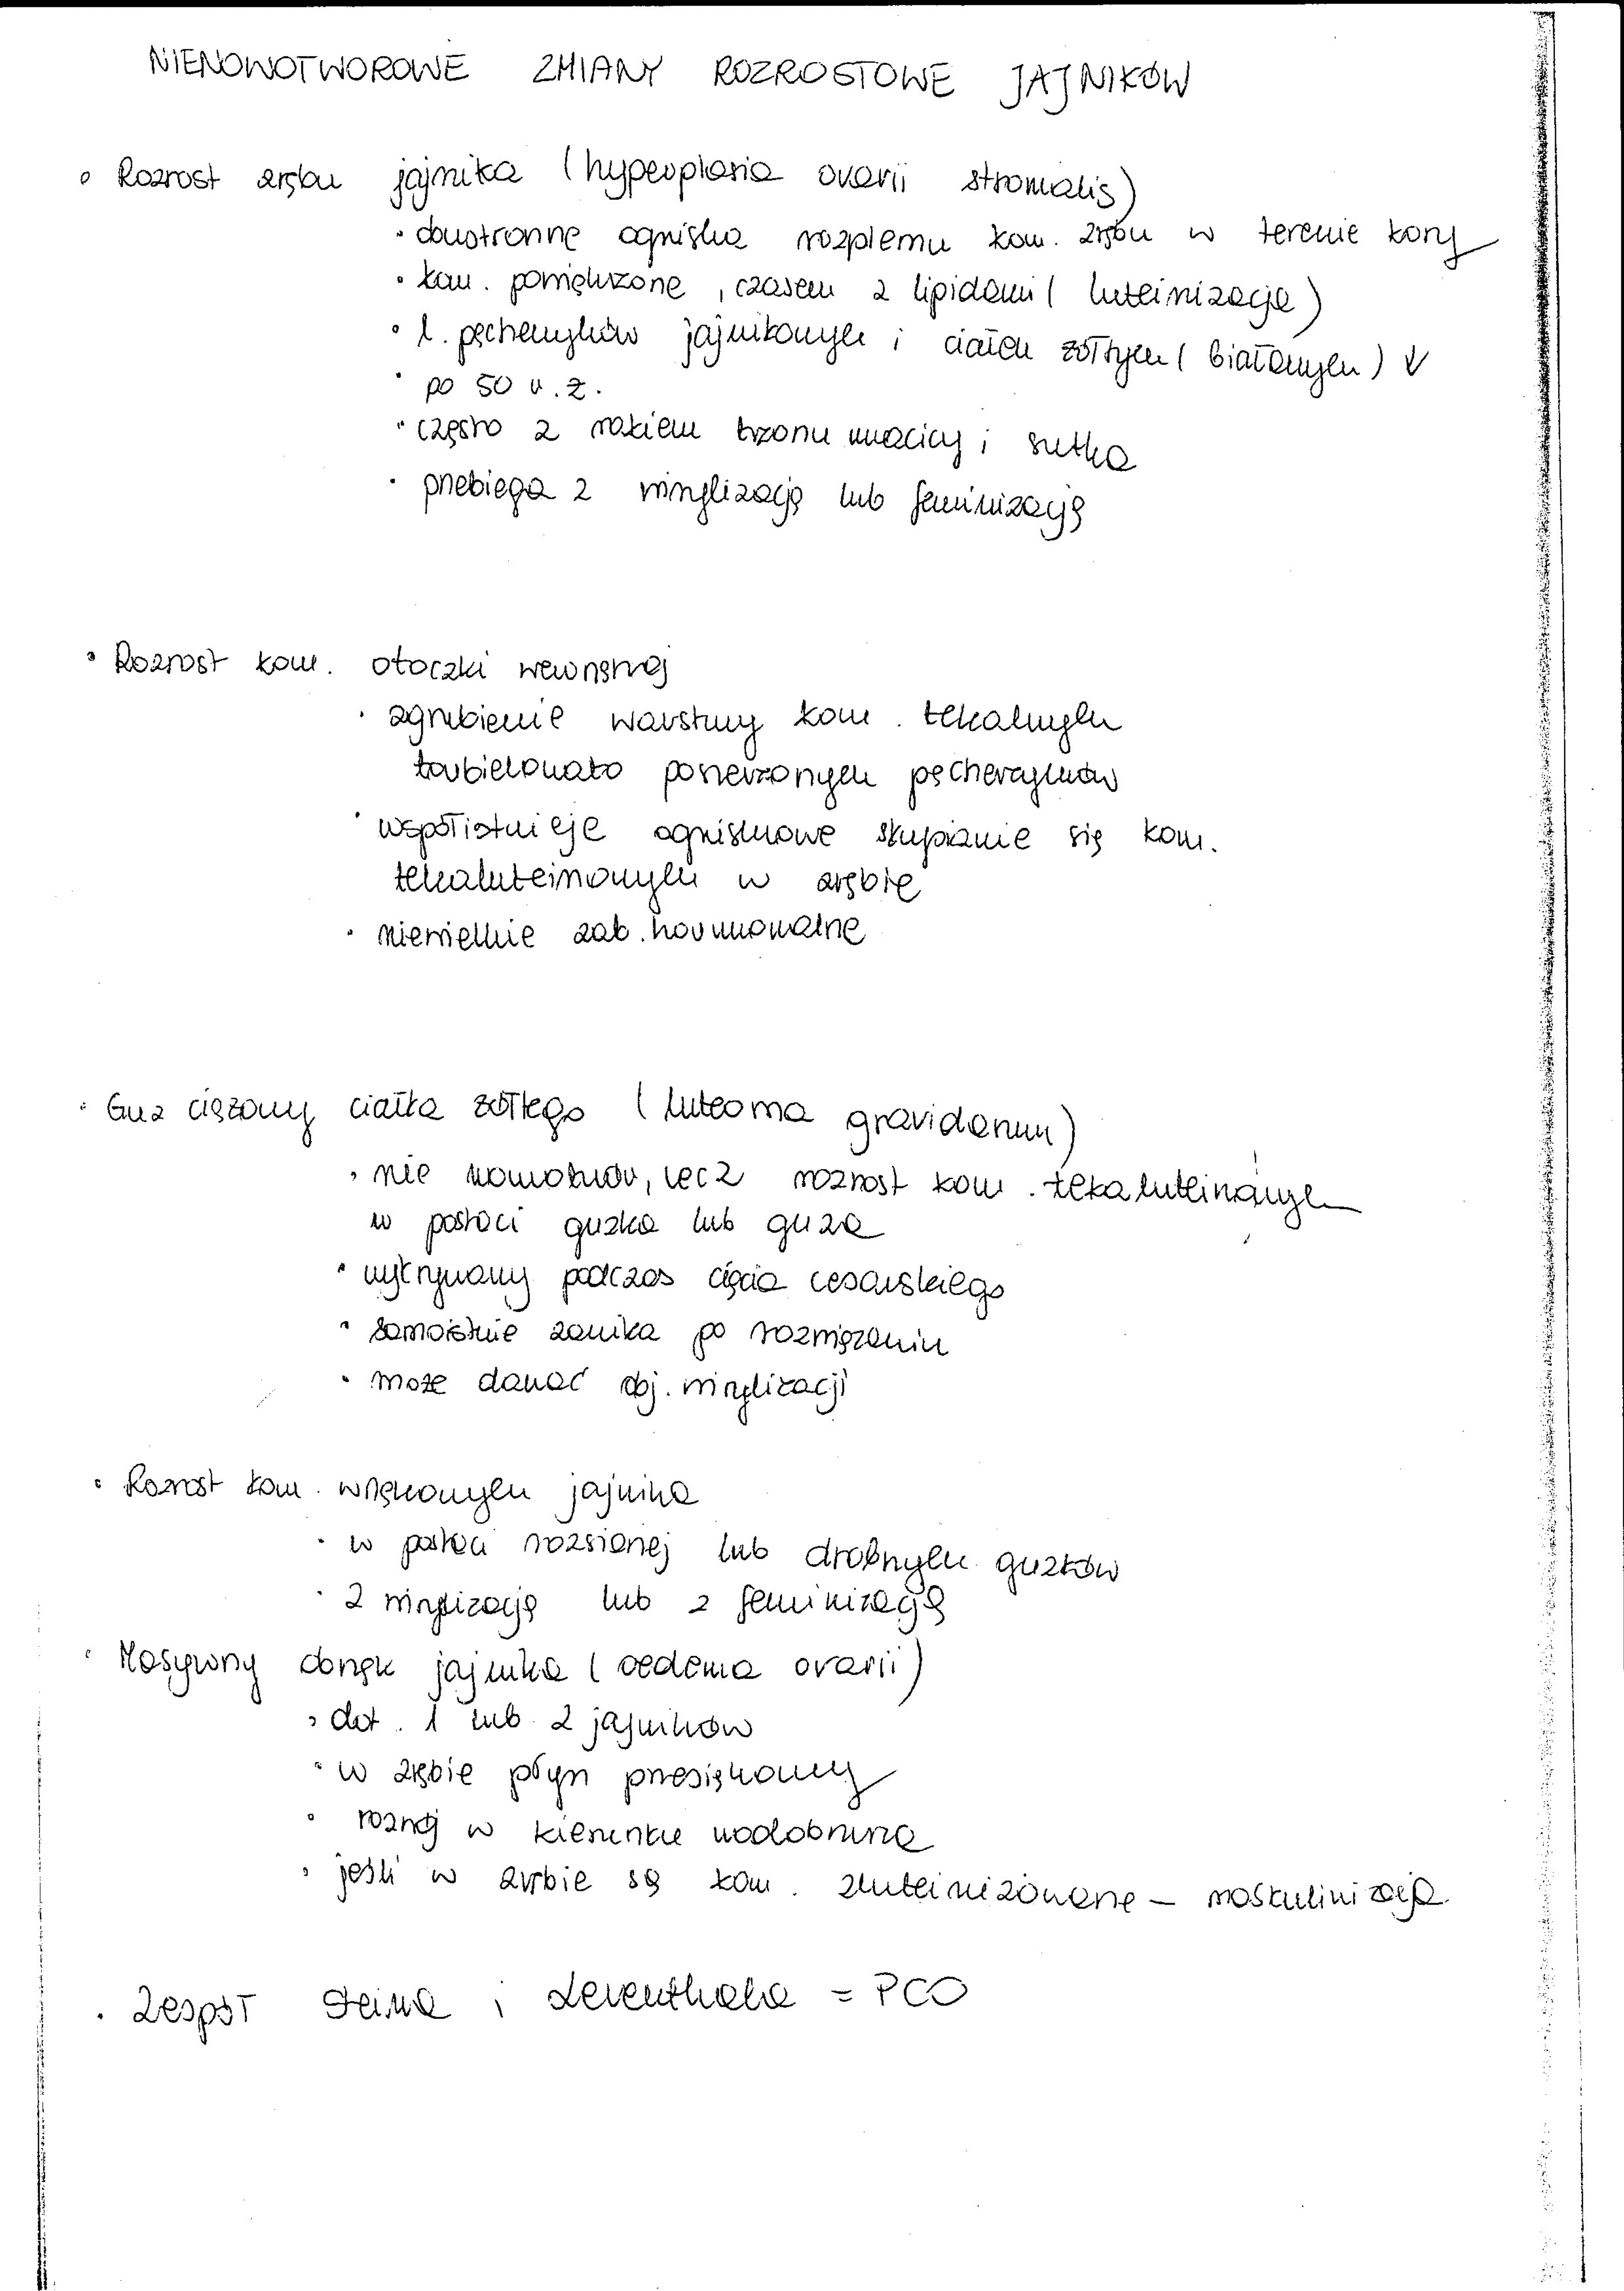 NIENOWOTWOROWE ZMIANY ROZROSTOWE JAJNIKÓW
• Rozrost zrębu jajnika (hyperplasia ovarii stromalis)
• dwustronne ogniska rozplemu kom. zrębu w terenie kory
• kom. powiększone, czasem z lipidami (luteinizacja)
• l. pęcherzyków jajnikowych i ciałek żółtych (białawych) ↓
• po 50 r.ż.
• często z rakiem trzonu macicy i sutka
• przebiega z wirylizacją lub feminizacją
• Rozrost kom. otoczki wewnętrznej
• zgrubienie warstwy kom. tekalnych
torbielowato poszerzonych pęcherzyków
• współistnieje ogniskowe skupianie się kom.
tekaluteinowych w zrębie
• niewielkie zab. hormonalne
• Guz ciążowy ciałka żółtego (luteoma gravidarum)
• nie nowotwór, lecz rozrost kom. tekaluteinowych
w postaci guzka lub guza
• wykrywany podczas cięcia cesarskiego
• samoistnie zanika po rozwiązaniu
• może dawać obj. wirylizacji
• Rozrost kom. wnękowych jajnika
• w postaci rozsianej lub drobnych guzków
• z wirylizacją lub z feminizacją
• Masywny obrzęk jajnika (oedema ovarii)
• dot. 1 lub 2 jajników
• w zrębie płyn przesiękowy
• rozwój w kierunku wodobrzusza
• jeśli w zrębie są kom. zluteinizowane – maskulinizacja
• Zespół Steina i Leventhala = PCO